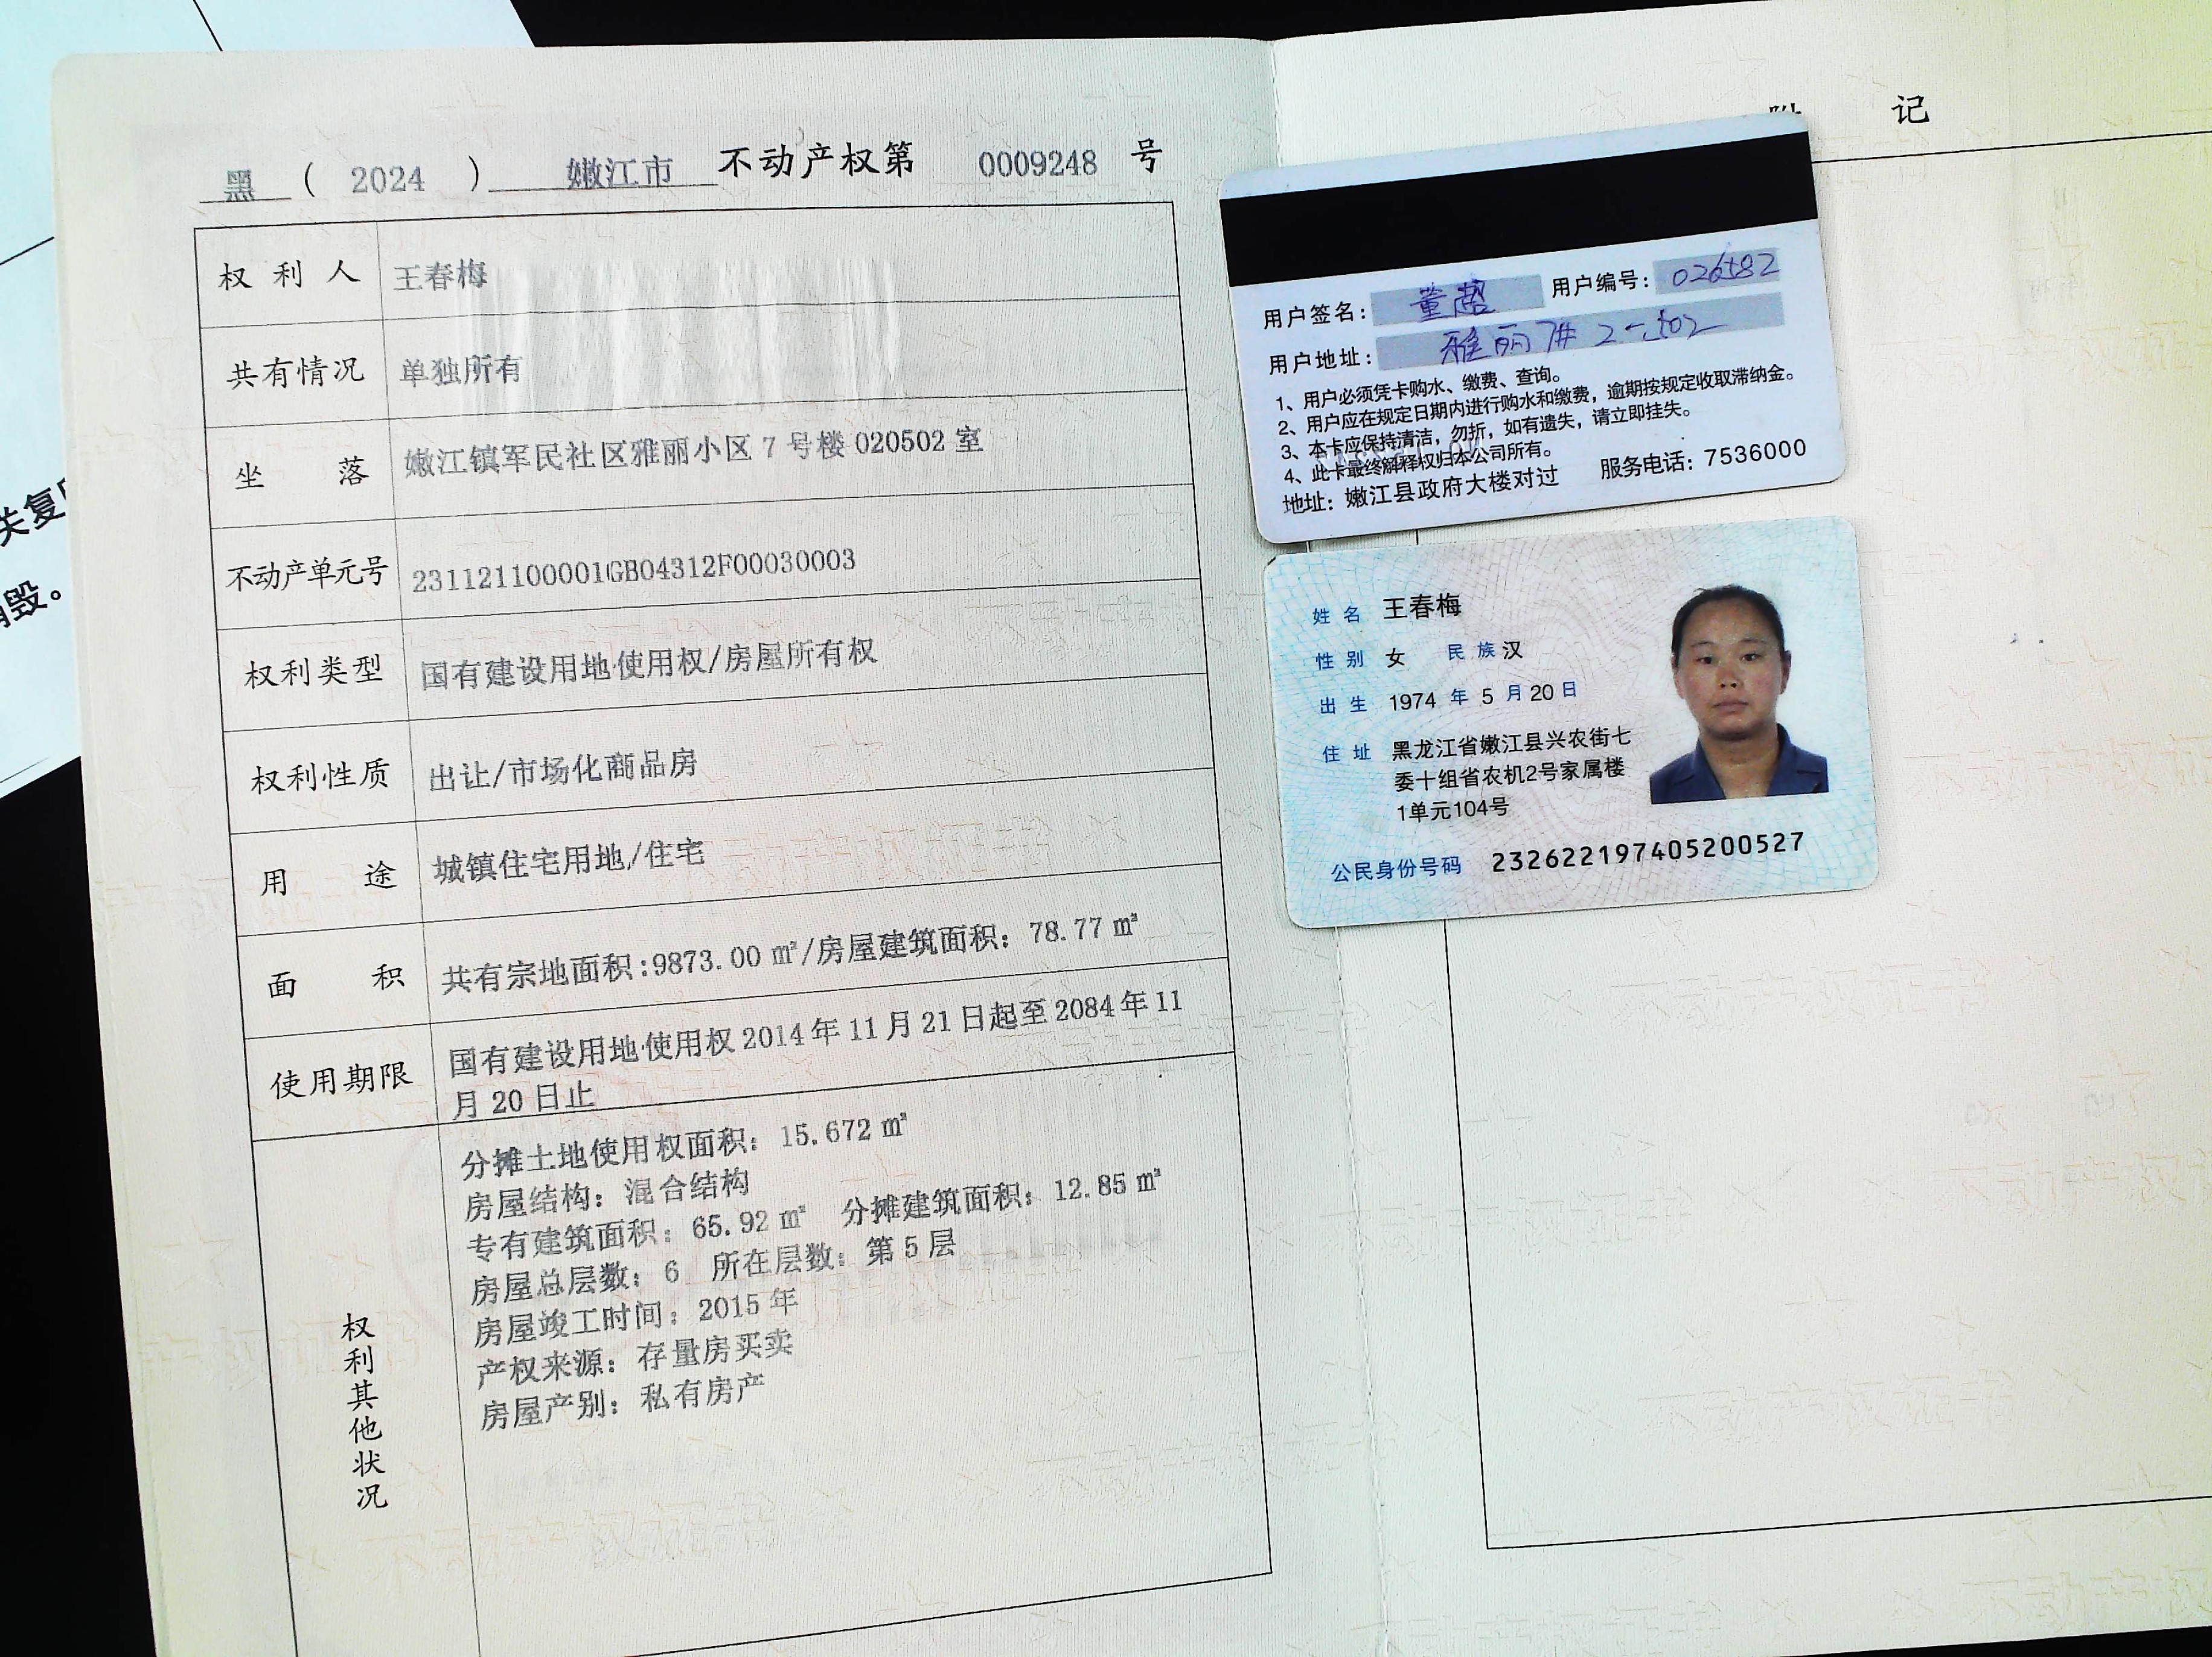 黑 ( 2024 ) 嫩江市 不动产权第 0009248 号
权利人 王春梅
共有情况 单独所有
坐落 嫩江镇军民社区雅丽小区 7 号楼 020502 室
不动产单元号 231121100001GB04312F00030003
权利类型 国有建设用地使用权/房屋所有权
权利性质 出让/市场化商品房
用途 城镇住宅用地/住宅
面积 共有宗地面积:9873.00 ㎡/房屋建筑面积: 78.77 ㎡
使用期限 国有建设用地使用权 2014 年 11 月 21 日起至 2084 年 11
月 20 日止
权利其他状况
分摊土地使用权面积: 15.672 ㎡
房屋结构: 混合结构
专有建筑面积: 65.92 ㎡ 分摊建筑面积: 12.85 ㎡
房屋总层数: 6 所在层数: 第 5 层
房屋竣工时间: 2015 年
产权来源: 存量房买卖
房屋产别: 私有房产
记
用户签名: 董 用户编号: 026582
用户地址: 雅丽7# 2-502
1、用户必须凭卡购水、缴费、查询。
2、用户应在规定日期内进行购水和缴费，逾期按规定收取滞纳金。
3、本卡应保持清洁，勿折，如有遗失，请立即挂失。
4、此卡最终解释权归本公司所有。
地址: 嫩江县政府大楼对过 服务电话: 7536000
姓名 王春梅
性别 女 民族 汉
出生 1974 年 5 月 20 日
住址 黑龙江省嫩江县兴农街七
委十组省农机2号家属楼
1单元104号
公民身份号码 232622197405200527
关复
毁。